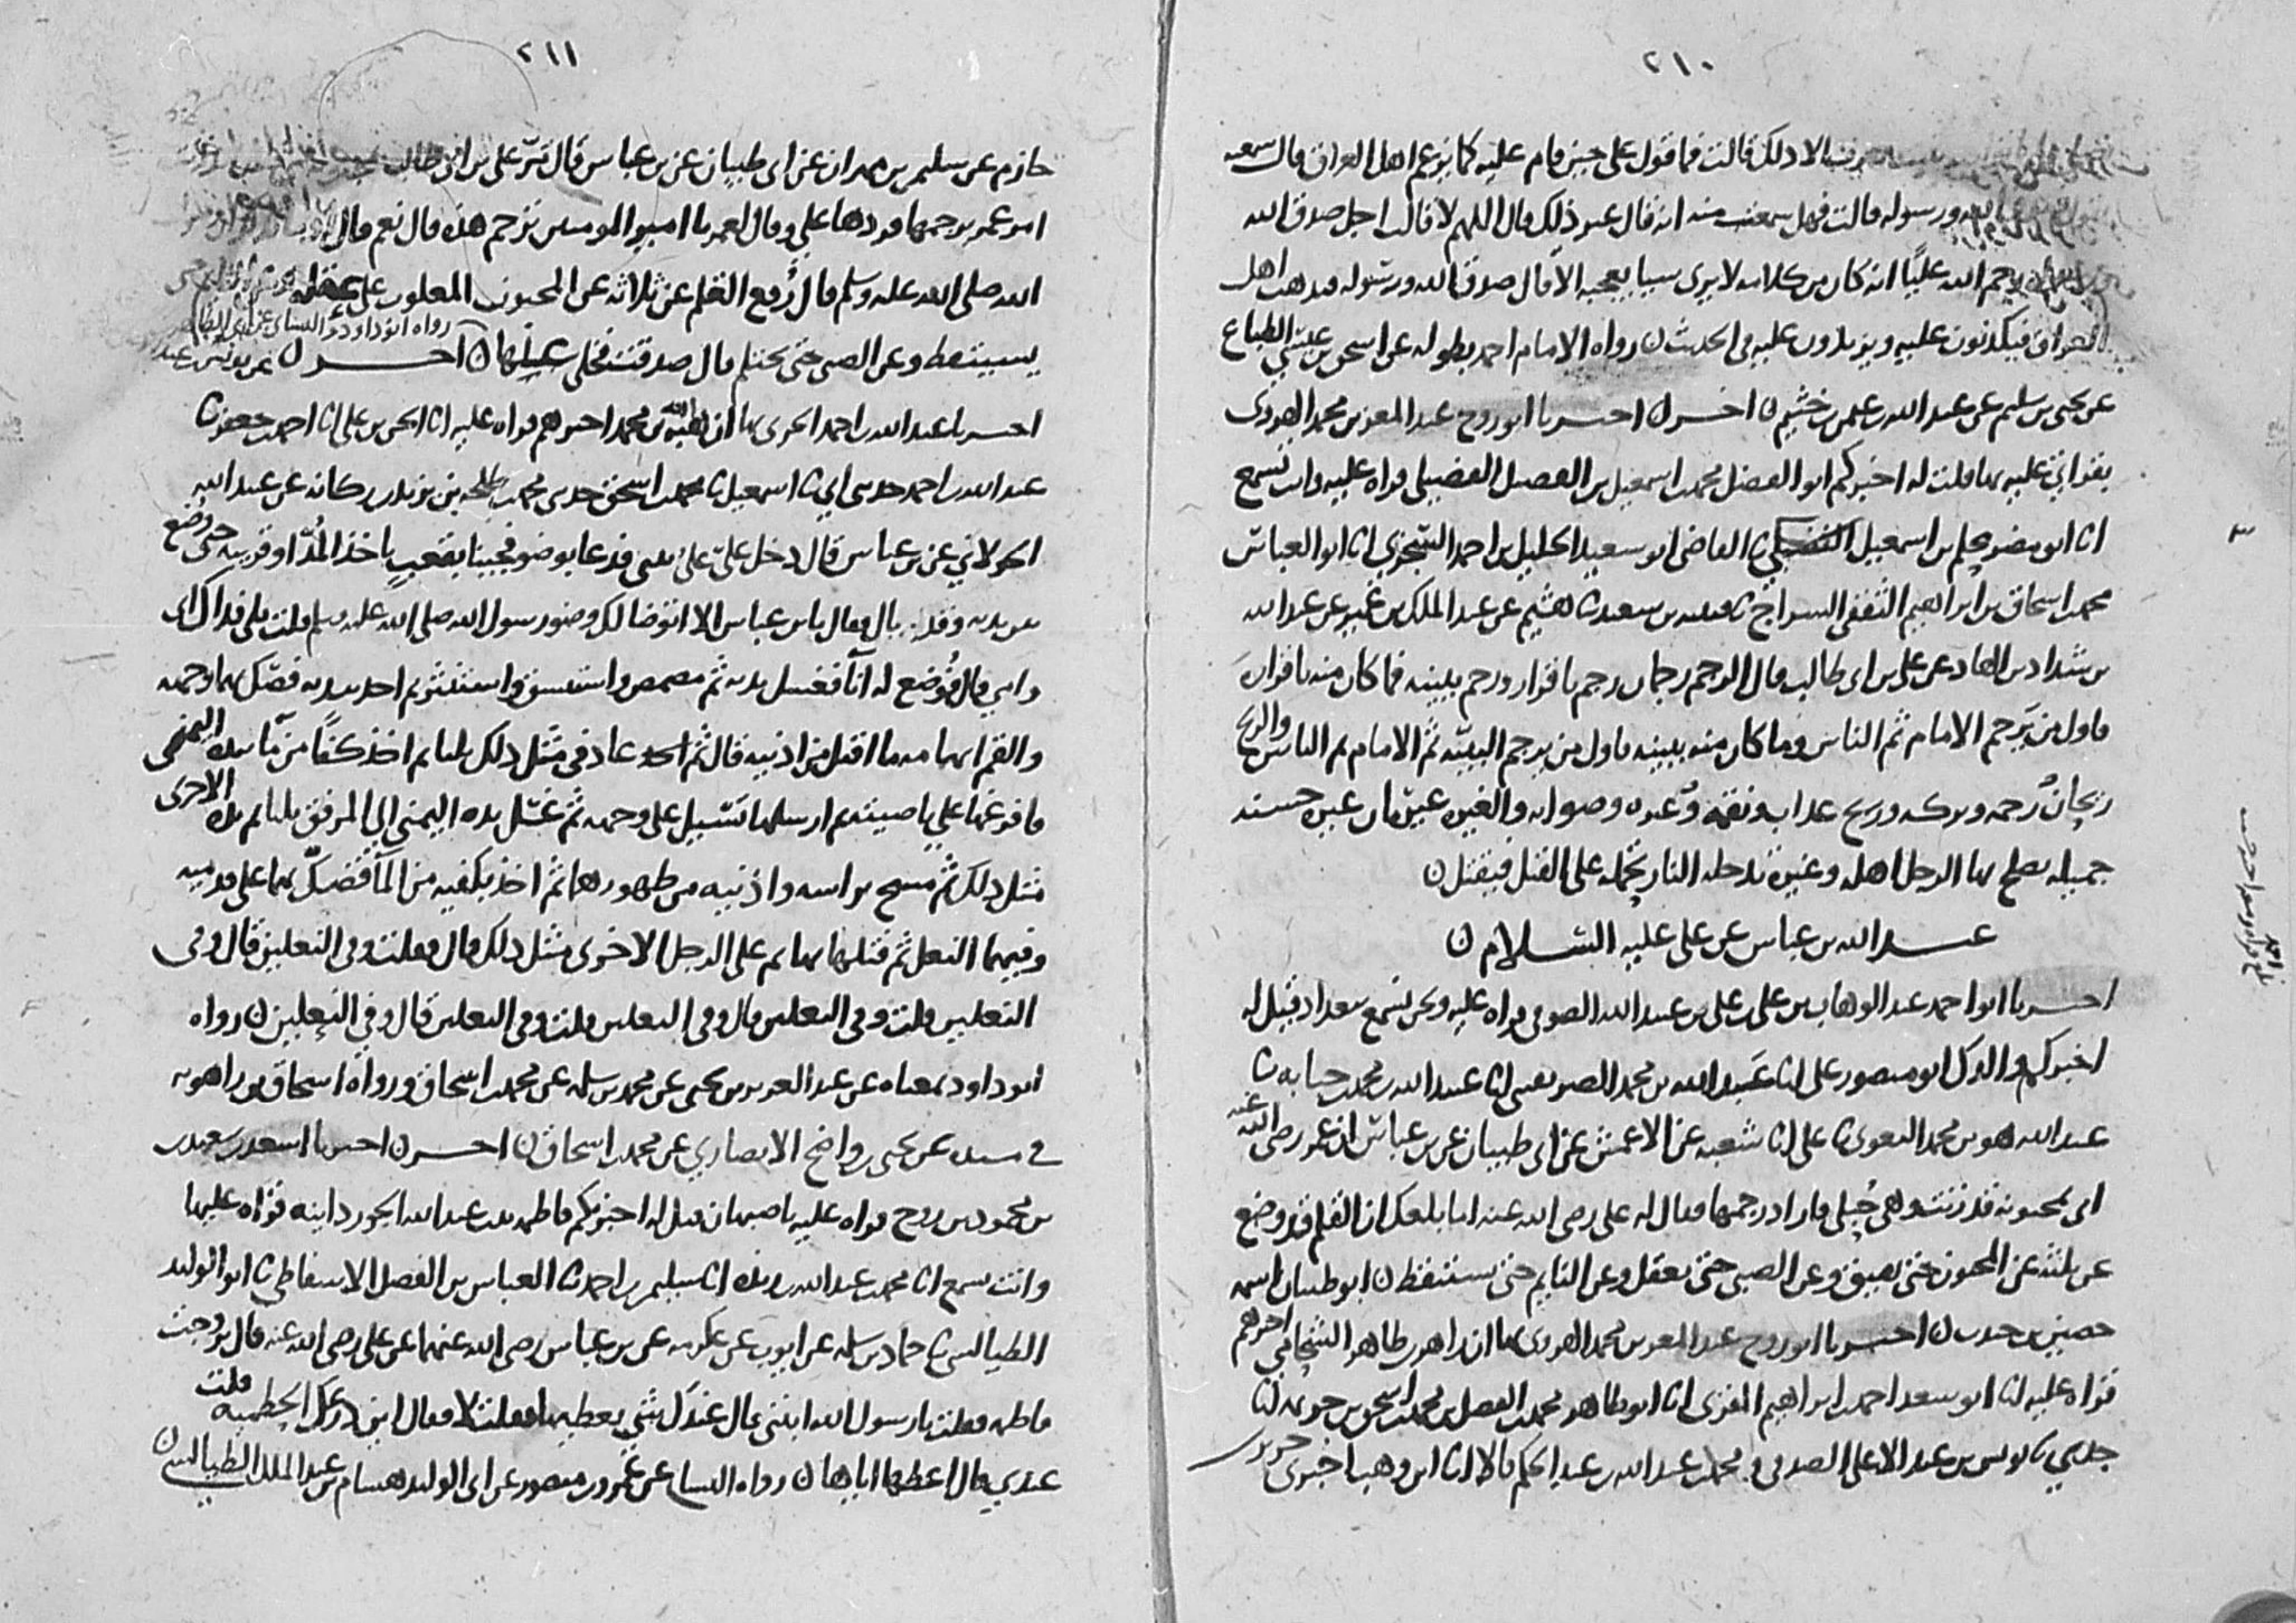 ٢١٠
الا ذلك قالت فما قول علي حين قام عليه كما يزعم اهل العراق قال سمعته
الله ورسوله قالت فهل سمعت منه انه قال غير ذلك قال اللهم لا قالت اجل صدق الله
يرحم الله عليا انه كان من كلامه لا يرى شيا يعجبه الا قال صدق الله ورسوله فيذهب اهل
العراق فيكذبون عليه ويزيدون عليه في الحديث ن رواه الامام احمد بطوله عن اسحق بن عيسى الطباع
عن يحيى بن سليم عن عبد الله بن عثمن بن خثيم ن اخر ن اخبرنا ابو روح عبد المعز بن محمد الهروي
بقراتي عليه بها قلت له اخبركم ابو الفضل محمد بن اسمعيل بن الفضيل الفضيلي قراه عليه وانت تسمع
انا ابو مضر محلم بن اسمعيل الفضيلي ثا القاضي ابو سعيد الخليل بن احمد السجزي انا ابو العباس
محمد بن اسحاق بن ابراهيم الثقفي السراج ثا قتيبه بن سعيد ثا هشيم عن عبد الملك بن عمير عن عبد الله
بن شداد بن الهاد عن علي بن ابي طالب قال الرجم رجمان رجم باقرار ورجم ببينه فما كان منه باقرار
فاول من يرجم الامام ثم الناس وما كان منه ببينه فاول من يرجم البينه ثم الامام ثم الناس والريح
ريحان رحمه وبركه وريح عذاب ونقمه والغيره غيرتان غيره حسنه
جميله يصلح بها الرجل اهله وغيره تدخله النار تحمله على القتل فيقتل ن
عبد الله بن عباس عن علي عليه السلام ن
اخبرنا ابو احمد عبد الوهاب بن علي بن علي بن عبيد الله الصوفي قراه عليه ونحن نسمع ببغداد قيل له
اخبركم والدك ابو منصور علي انا عبد الله بن محمد الصريفيني انا عبيد الله بن محمد بن حبابه ثا
عبد الله هو بن محمد البغوي ثا علي انا شعبه عن الاعمش عن ابي ظبيان عن بن عباس ان عمر رضي الله عنه
اتي بمجنونه قد زنت وهي حبلى فاراد رجمها فقال له علي رضي الله عنه اما بلغك ان القلم قد وضع
عن ثلثه عن المجنون حتى يفيق وعن الصبي حتى يعقل وعن النايم حتى يستيقظ ن ابو ظبيان اسمه
حصين بن جندب ن اخبرنا ابو روح عبد المعز بن محمد الهروي بها ان زاهر بن طاهر الشحامي اخبرهم
قراه عليه انا ابو سعد احمد بن ابراهيم المقري انا ابو طاهر محمد بن الفضل بن محمد بن اسحق بن خزيمه انا
جدي ثا يونس بن عبد الاعلى الصدفي ومحمد بن عبد الله بن عبد الحكم قالا انا ابن وهب اخبرني جرير بن
٢١١
حازم عن سليمن بن مهران عن ابي ظبيان عن بن عباس قال مر علي بن ابي طالب
امر عمر برجمها فردها علي وقال لعمر يا امير المومنين ترجم هذه قال نعم قال
الله صلى الله عليه وسلم قال رفع القلم عن ثلاثه عن المجنون المغلوب على عقله
رواه ابو داود والنساي عن ابي الطاهر
يستيقظ وعن الصبي حتى يحتلم قال صدقت فخلى عنها ن اخر ن
اخبرنا عبد الله بن احمد الحربي بها ان هبه الله بن محمد اخبرهم قراه عليه انا الحسن بن علي انا احمد بن جعفر ثا
عبد الله بن احمد حدثني ابي ثا اسمعيل ثا محمد بن اسحق حدثني محمد بن طلحه بن يزيد بن ركانه عن عبيد الله
الخولاني عن بن عباس قال دخل علي علي بيتي فدعا بوضو فجينا بقعب ياخذ المد او قريبه حتى وضع
بين يديه وقد بال فقال يا بن عباس الا اتوضا لك وضو رسول الله صلى الله عليه وسلم قلت بلى فداك ابي
وامي قال فوضع له انا فغسل يديه ثم مضمض واستنشق واستنثر ثم اخذ بيديه فصك بهما وجهه
والقم ابهاميه ما اقبل من اذنيه قال ثم عاد في مثل ذلك ثلثا ثم اخذ كفا من ما بيده اليمنى
فافرغها على ناصيته ثم ارسلها تسيل على وجهه ثم غسل يده اليمنى الى المرفق ثلثا ثم يده الاخرى
مثل ذلك ثم مسح براسه واذنيه من ظهورهما ثم اخذ بكفيه من الما فصك بهما على قدميه
وفيهما النعل ثم فتلها بها ثم على الرجل الاخرى مثل ذلك قال فقلت وفي النعلين قال وفي
النعلين قلت وفي النعلين قال وفي النعلين قلت وفي النعلين قال وفي النعلين ن رواه
ابو داود بمعناه عن عبد العزيز بن يحيى عن محمد بن سلمه عن محمد بن اسحاق ورواه اسحاق بن راهويه
في مسنده عن يحيى بن واضح الانصاري عن محمد بن اسحاق ن اخر ن اخبرنا اسعد بن سعيد
بن محمود بن روح قراه عليه باصبهان قيل له اخبرتكم فاطمه بنت عبد الله الجوزدانيه قراه عليها
وانت تسمع انا محمد بن عبد الله بن ريذه انا سليمن بن احمد ثا العباس بن الفضل الاسفاطي ثا ابو الوليد
الطيالسي ثا حماد بن سلمه عن ايوب عن عكرمه عن بن عباس رضي الله عنهما عن علي رضي الله عنه قال تزوجت
فاطمه فقلت يا رسول الله ابتني قال عندك شي تعطيها فقلت لا فقال اين درعك الحطميه قلت
عندي قال اعطها اياها ن رواه النساي عن عمرو بن منصور عن ابي الوليد هشام بن عبد الملك الطيالسي ن